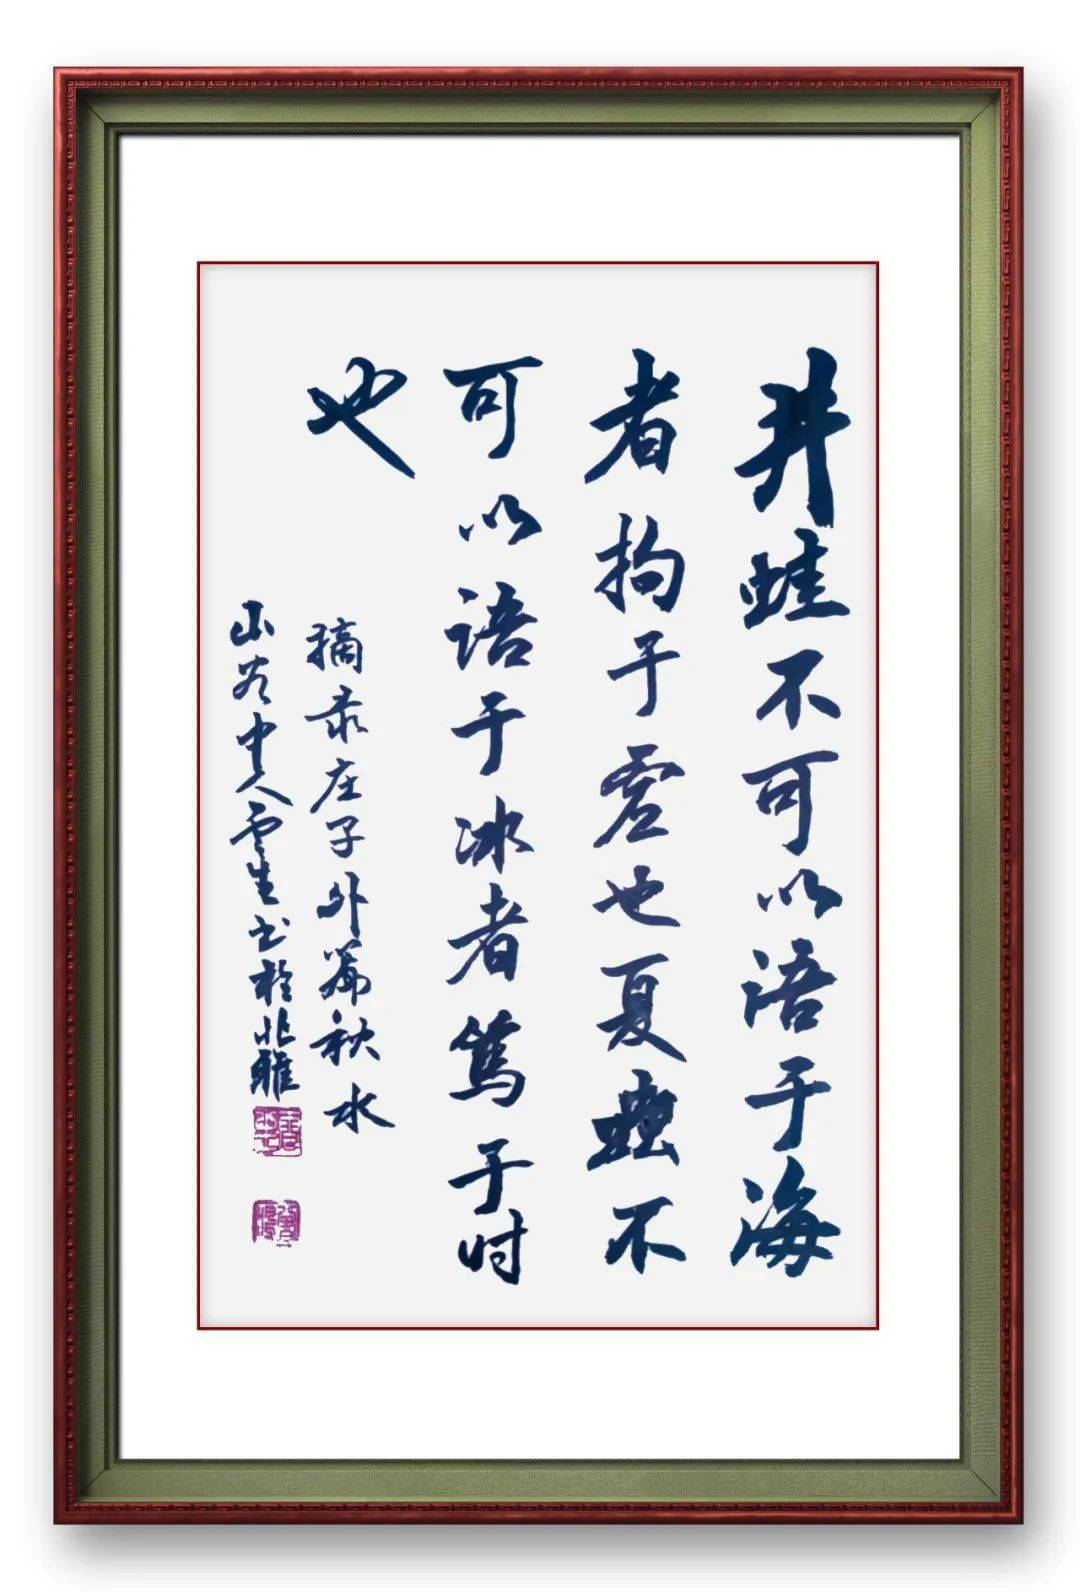 井蛙不可以语于海
者拘于虚也夏蟲不
可以语于冰者笃于时
也
摘录庄子外篇秋水
山谷中人雲生书於北